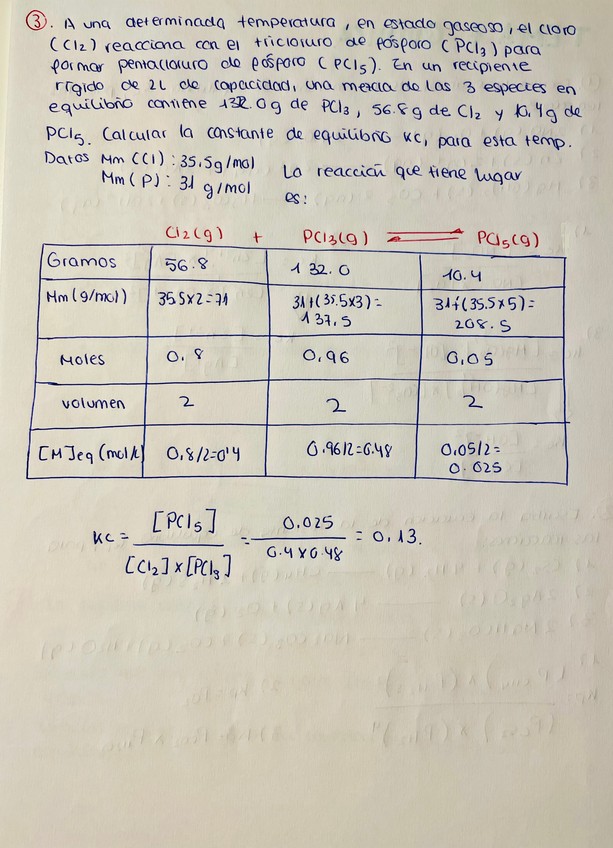 ③. A una determinada temperatura, en estado gaseoso, el cloro
(Cl2) reacciona con el tricloruro de fósforo (PCl3) para
formar pentacloruro de fósforo (PCl5). En un recipiente
rígido de 2L de capacidad, una mezcla de las 3 especies en
equilibrio contiene 132.0g de PCl3, 56.8g de Cl2 y 10.4g de
PCl5. Calcular la constante de equilibrio KC, para esta temp.
Datos Mm (Cl): 35.5g/mol
Mm(P): 31 g/mol
La reacción que tiene lugar
es:
Cl2(g) + PCl3(g) ⇌ PCl5(g)
Gramos 56.8 132.0 10.4
Mm(g/mol) 35.5x2=71 31+(35.5x3)= 137.5 31+(35.5x5)= 208.5
Moles 0.8 0.96 0.05
Volumen 2 2 2
[M]eq (mol/L) 0.8/2=0'4 0.96/2=0.48 0.05/2= 0.025
KC = [PCl5] / [Cl2]x[PCl3] = 0.025 / 0.4x0.48 = 0.13.